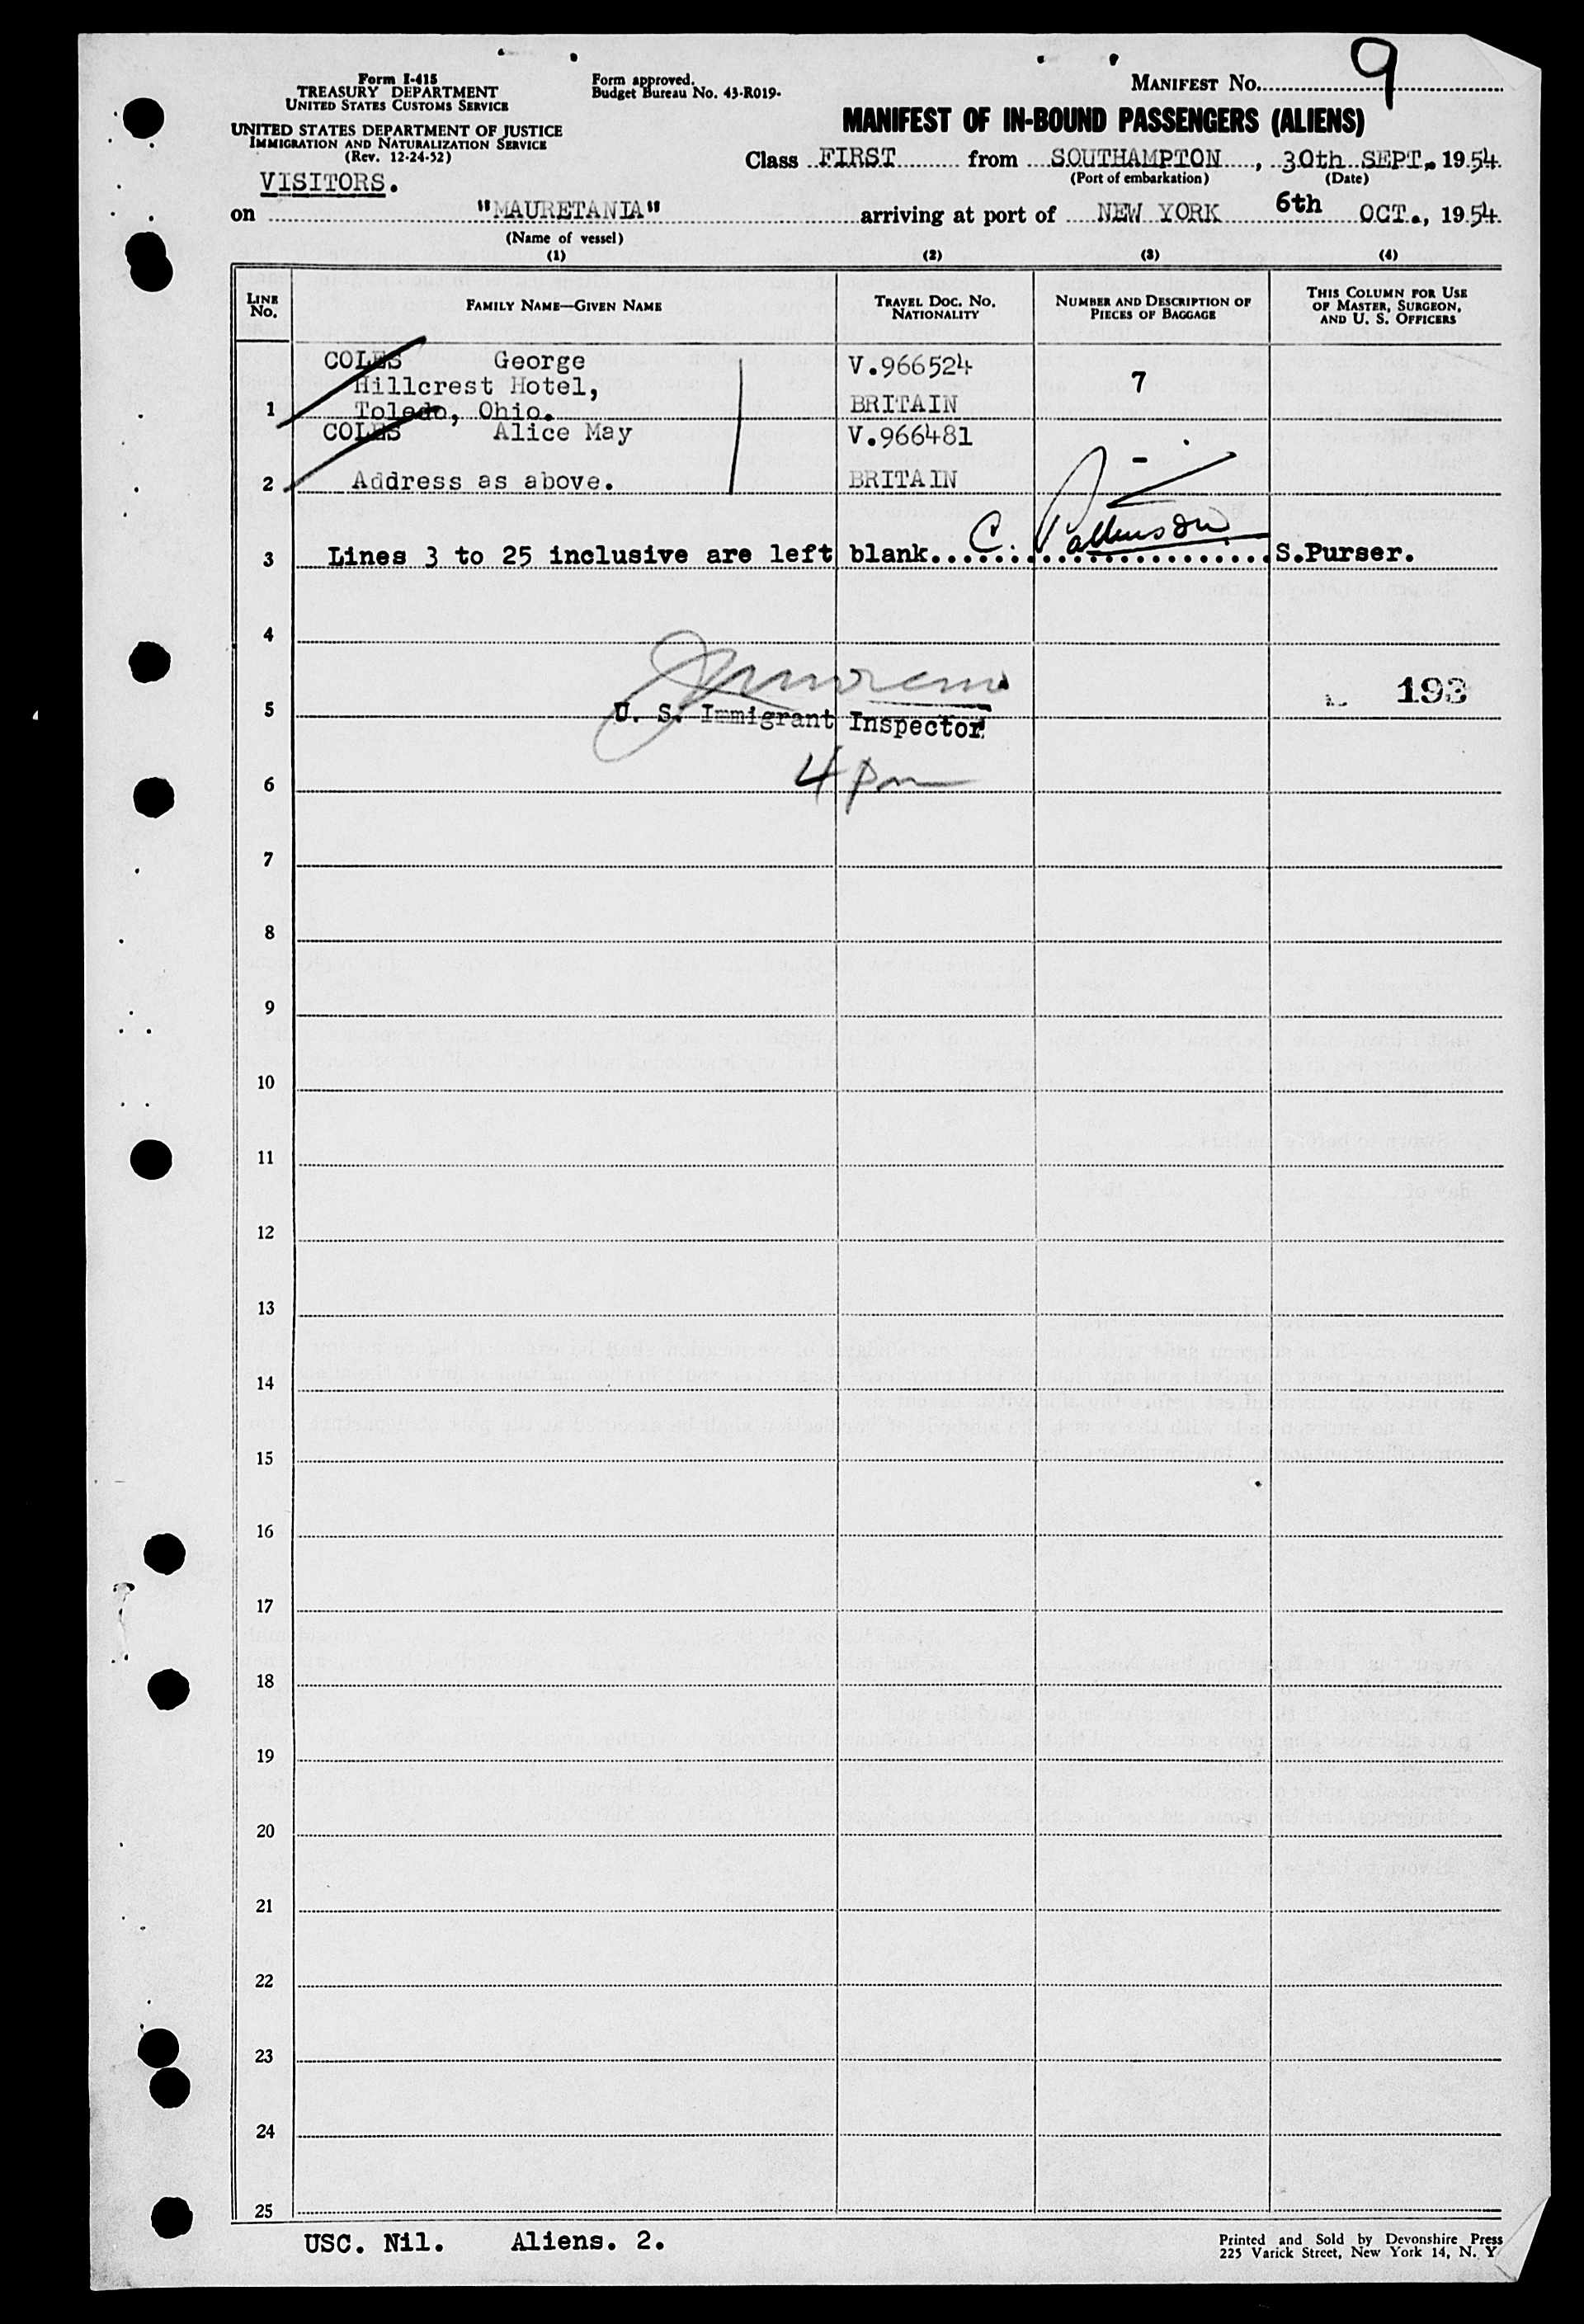 Form I-415
TREASURY DEPARTMENT
UNITED STATES CUSTOMS SERVICE
UNITED STATES DEPARTMENT OF JUSTICE
IMMIGRATION AND NATURALIZATION SERVICE
(Rev. 12-24-52)
Form approved.
Budget Bureau No. 43-R019-
MANIFEST No. 9
MANIFEST OF IN-BOUND PASSENGERS (ALIENS)
Class FIRST from SOUTHAMPTON, 30th SEPT. 1954
(Port of embarkation) (Date)
VISITORS.
on "MAURETANIA" arriving at port of NEW YORK 6th OCT., 1954
(Name of vessel)
(1) (2) (3) (4)
LINE No. FAMILY NAME—GIVEN NAME TRAVEL DOC. No. NATIONALITY NUMBER AND DESCRIPTION OF PIECES OF BAGGAGE THIS COLUMN FOR USE OF MASTER, SURGEON, AND U. S. OFFICERS
COLES George V.966524
Hillcrest Hotel, 7
1 Toledo, Ohio. BRITAIN
COLES Alice May V.966481 -
2 Address as above. BRITAIN
3 Lines 3 to 25 inclusive are left blank.... C. Pattinson ....S.Purser.
4
5 U. S. Immigrant Inspector 193
4 pm
6
7
8
9
10
11
12
13
14
15
16
17
18
19
20
21
22
23
24
25
USC. Nil. Aliens. 2.
Printed and Sold by Devonshire Press
225 Varick Street, New York 14, N. Y